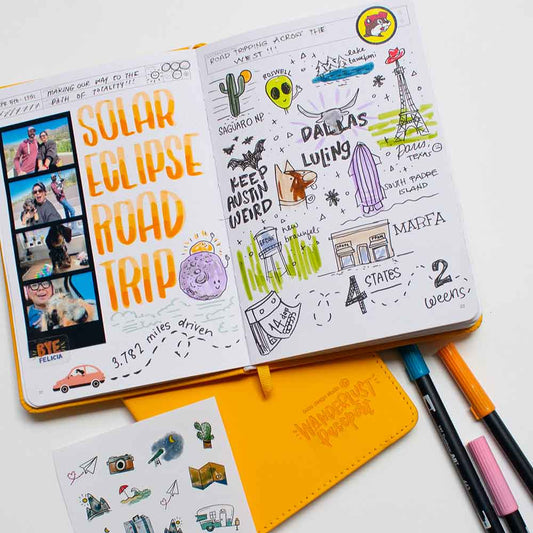 MAKING OUR WAY TO THE
PATH OF TOTALITY!!!
SOLAR
ECLIPSE
ROAD
TRIP
BYE
FELICIA
3,782 miles driven
ROAD TRIPPING ACROSS THE
WEST!!!
SAGUARO NP
ROSWELL
lake
DALLAS
LULING
Paris,
TEXAS
KEEP
AUSTIN
WEIRD
SOUTH PADRE
ISLAND
new
braunfels
MARFA
PRADA
PRADA
14 day
4
STATES
2
weeks
WANDERLUST